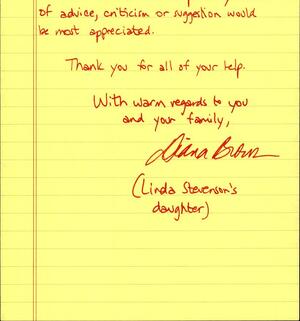 of advice, criticism or suggestion would
be most appreciated.
Thank you for all of your help.
With warm regards to you
and your family,
Diana Brown
(Linda Stevenson's
daughter)